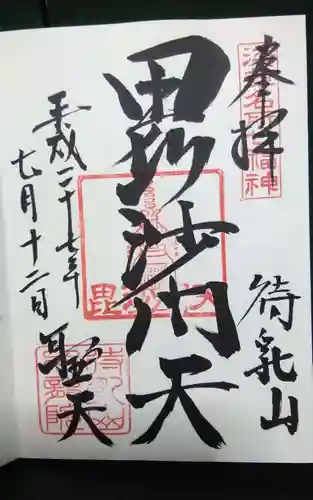 奉拝
待乳山
毘沙門天
聖天
平成二十七年
七月十二日